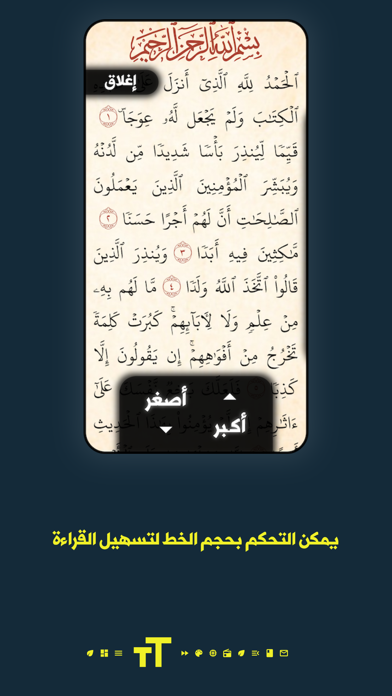 بِسْمِ ٱللَّهِ ٱلرَّحْمَٰنِ ٱلرَّحِيمِ
إغلاق
ٱلْحَمْدُ لِلَّهِ ٱلَّذِىٓ أَنزَلَ
ٱلْكِتَٰبَ وَلَمْ يَجْعَل لَّهُۥ عِوَجَاۜ ١
قَيِّمًا لِّيُنذِرَ بَأْسًا شَدِيدًا مِّن لَّدُنْهُ
وَيُبَشِّرَ ٱلْمُؤْمِنِينَ ٱلَّذِينَ يَعْمَلُونَ
ٱلصَّٰلِحَٰتِ أَنَّ لَهُمْ أَجْرًا حَسَنًا ٢
مَّٰكِثِينَ فِيهِ أَبَدًا ٣ وَيُنذِرَ ٱلَّذِينَ
قَالُوا۟ ٱتَّخَذَ ٱللَّهُ وَلَدًا ٤ مَّا لَهُم بِهِۦ
مِنْ عِلْمٍ وَلَا لِـَٔابَآئِهِمْ ۚ كَبُرَتْ كَلِمَةً
تَخْرُجُ مِنْ أَفْوَٰهِهِمْ ۚ إِن يَقُولُونَ إِلَّا
كَذِبًا نَفْسَكَ عَلَىٰٓ
ءَاثَٰرِهِمْ ٱلْحَدِيثِ
أصغر
أكبر
يمكن التحكم بحجم الخط لتسهيل القراءة
TT